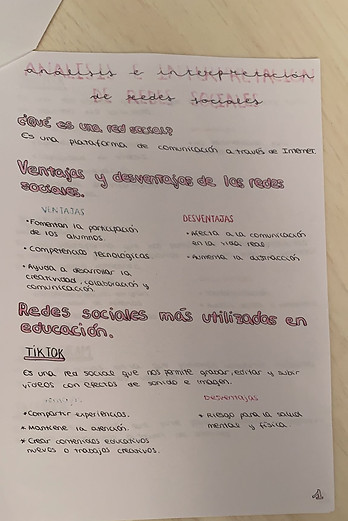 ANALISIS E INTERPRETACIÓN
análisis e interpretación
DE REDES SOCIALES
de redes sociales
¿QUÉ ES UNA RED SOCIAL?
Es una plataforma de comunicación a través de Internet.
Ventajas y desventajas de las redes
sociales.
VENTAJAS
• Fomentan la participación
de los alumnos.
• Competencias tecnológicas
• Ayuda a desarrollar la
creatividad, colaboración y
comunicación.
DESVENTAJAS
• Afecta a la comunicación
en la vida real
• Aumenta la distracción
Redes sociales más utilizadas en
educación.
TIKTOK
Es una red social que nos permite grabar, editar y subir
vídeos con efectos de sonido e imagen.
Ventajas
* Compartir experiencias.
* Mantiene la atención.
* Crear contenidos educativos
nuevos o trabajos creativos.
Desventajas
* Riesgo para la salud
mental y física.
1